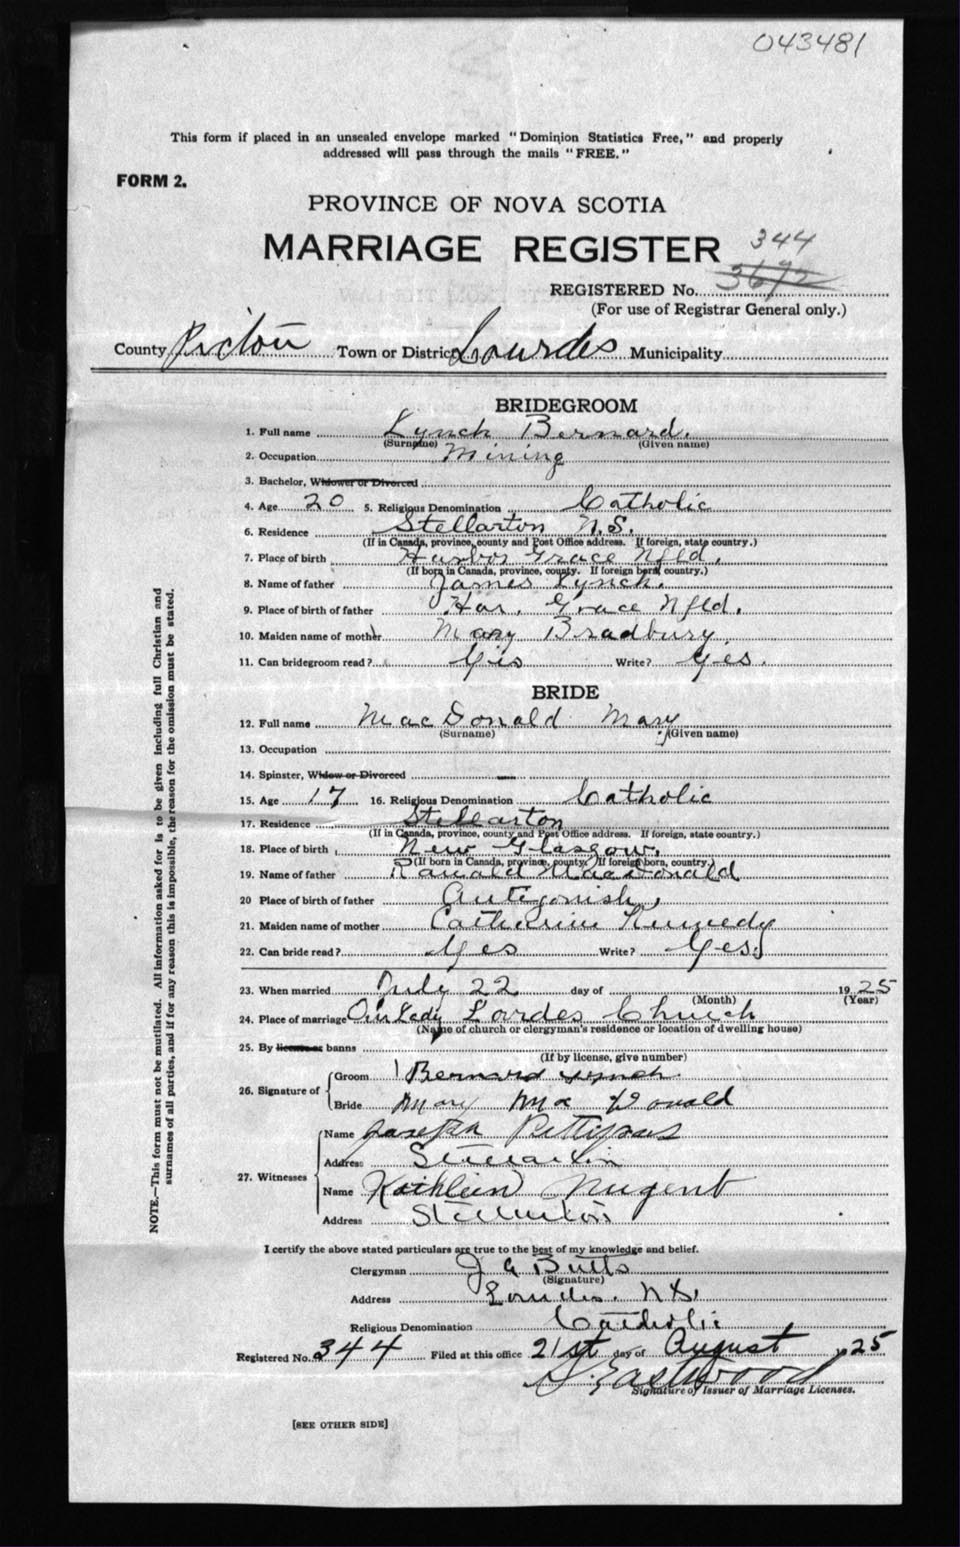 043481
This form if placed in an unsealed envelope marked "Dominion Statistics Free," and properly
addressed will pass through the mails "FREE."
FORM 2.
PROVINCE OF NOVA SCOTIA
MARRIAGE REGISTER
344
REGISTERED No. 3672
(For use of Registrar General only.)
County Pictou Town or District Lourdes Municipality
BRIDEGROOM
1. Full name Lynch Bernard.
(Surname) (Given name)
2. Occupation Mining
3. Bachelor, Widower or Divorced
4. Age 20 5. Religious Denomination Catholic
6. Residence Stellarton N.S.
(If in Canada, province, county and Post Office address. If foreign, state country.)
7. Place of birth Harbor Grace Nfld.
(If born in Canada, province, county. If foreign born country.)
8. Name of father James Lynch.
9. Place of birth of father Har. Grace Nfld.
10. Maiden name of mother Mary Bradbury.
11. Can bridegroom read? Yes Write? Yes.
BRIDE
12. Full name MacDonald Mary
(Surname) (Given name)
13. Occupation
14. Spinster, Widow or Divorced
15. Age 17 16. Religious Denomination Catholic
17. Residence Stellarton
(If in Canada, province, county and Post Office address. If foreign, state country.)
18. Place of birth New Glasgow.
(If born in Canada, province, county. If foreign born, country.)
19. Name of father Ranald MacDonald
20 Place of birth of father Antigonish,
21. Maiden name of mother Catharine Kennedy
22. Can bride read? Yes Write? Yes.
23. When married July 22 day of 1925
(Month) (Year)
24. Place of marriage Our Lady Lourdes Church
(Name of church or clergyman's residence or location of dwelling house)
25. By license or banns
(If by license, give number)
26. Signature of Groom Bernard Lynch.
Bride Mary MacDonald
27. Witnesses Name Joseph Pettipas
Address Stellarton
Name Kathleen Nugent
Address Stellarton
I certify the above stated particulars are true to the best of my knowledge and belief.
Clergyman J G Butts
(Signature)
Address Lourdes. N.S.
Religious Denomination Catholic
Registered No. 344 Filed at this office 21st day of August 1925
Eastwood
Signature of Issuer of Marriage Licenses.
[SEE OTHER SIDE]
NOTE.—This form must not be mutilated. All information asked for is to be given including full Christian and
surnames of all parties, and if for any reason this is impossible, the reason for the omission must be stated.